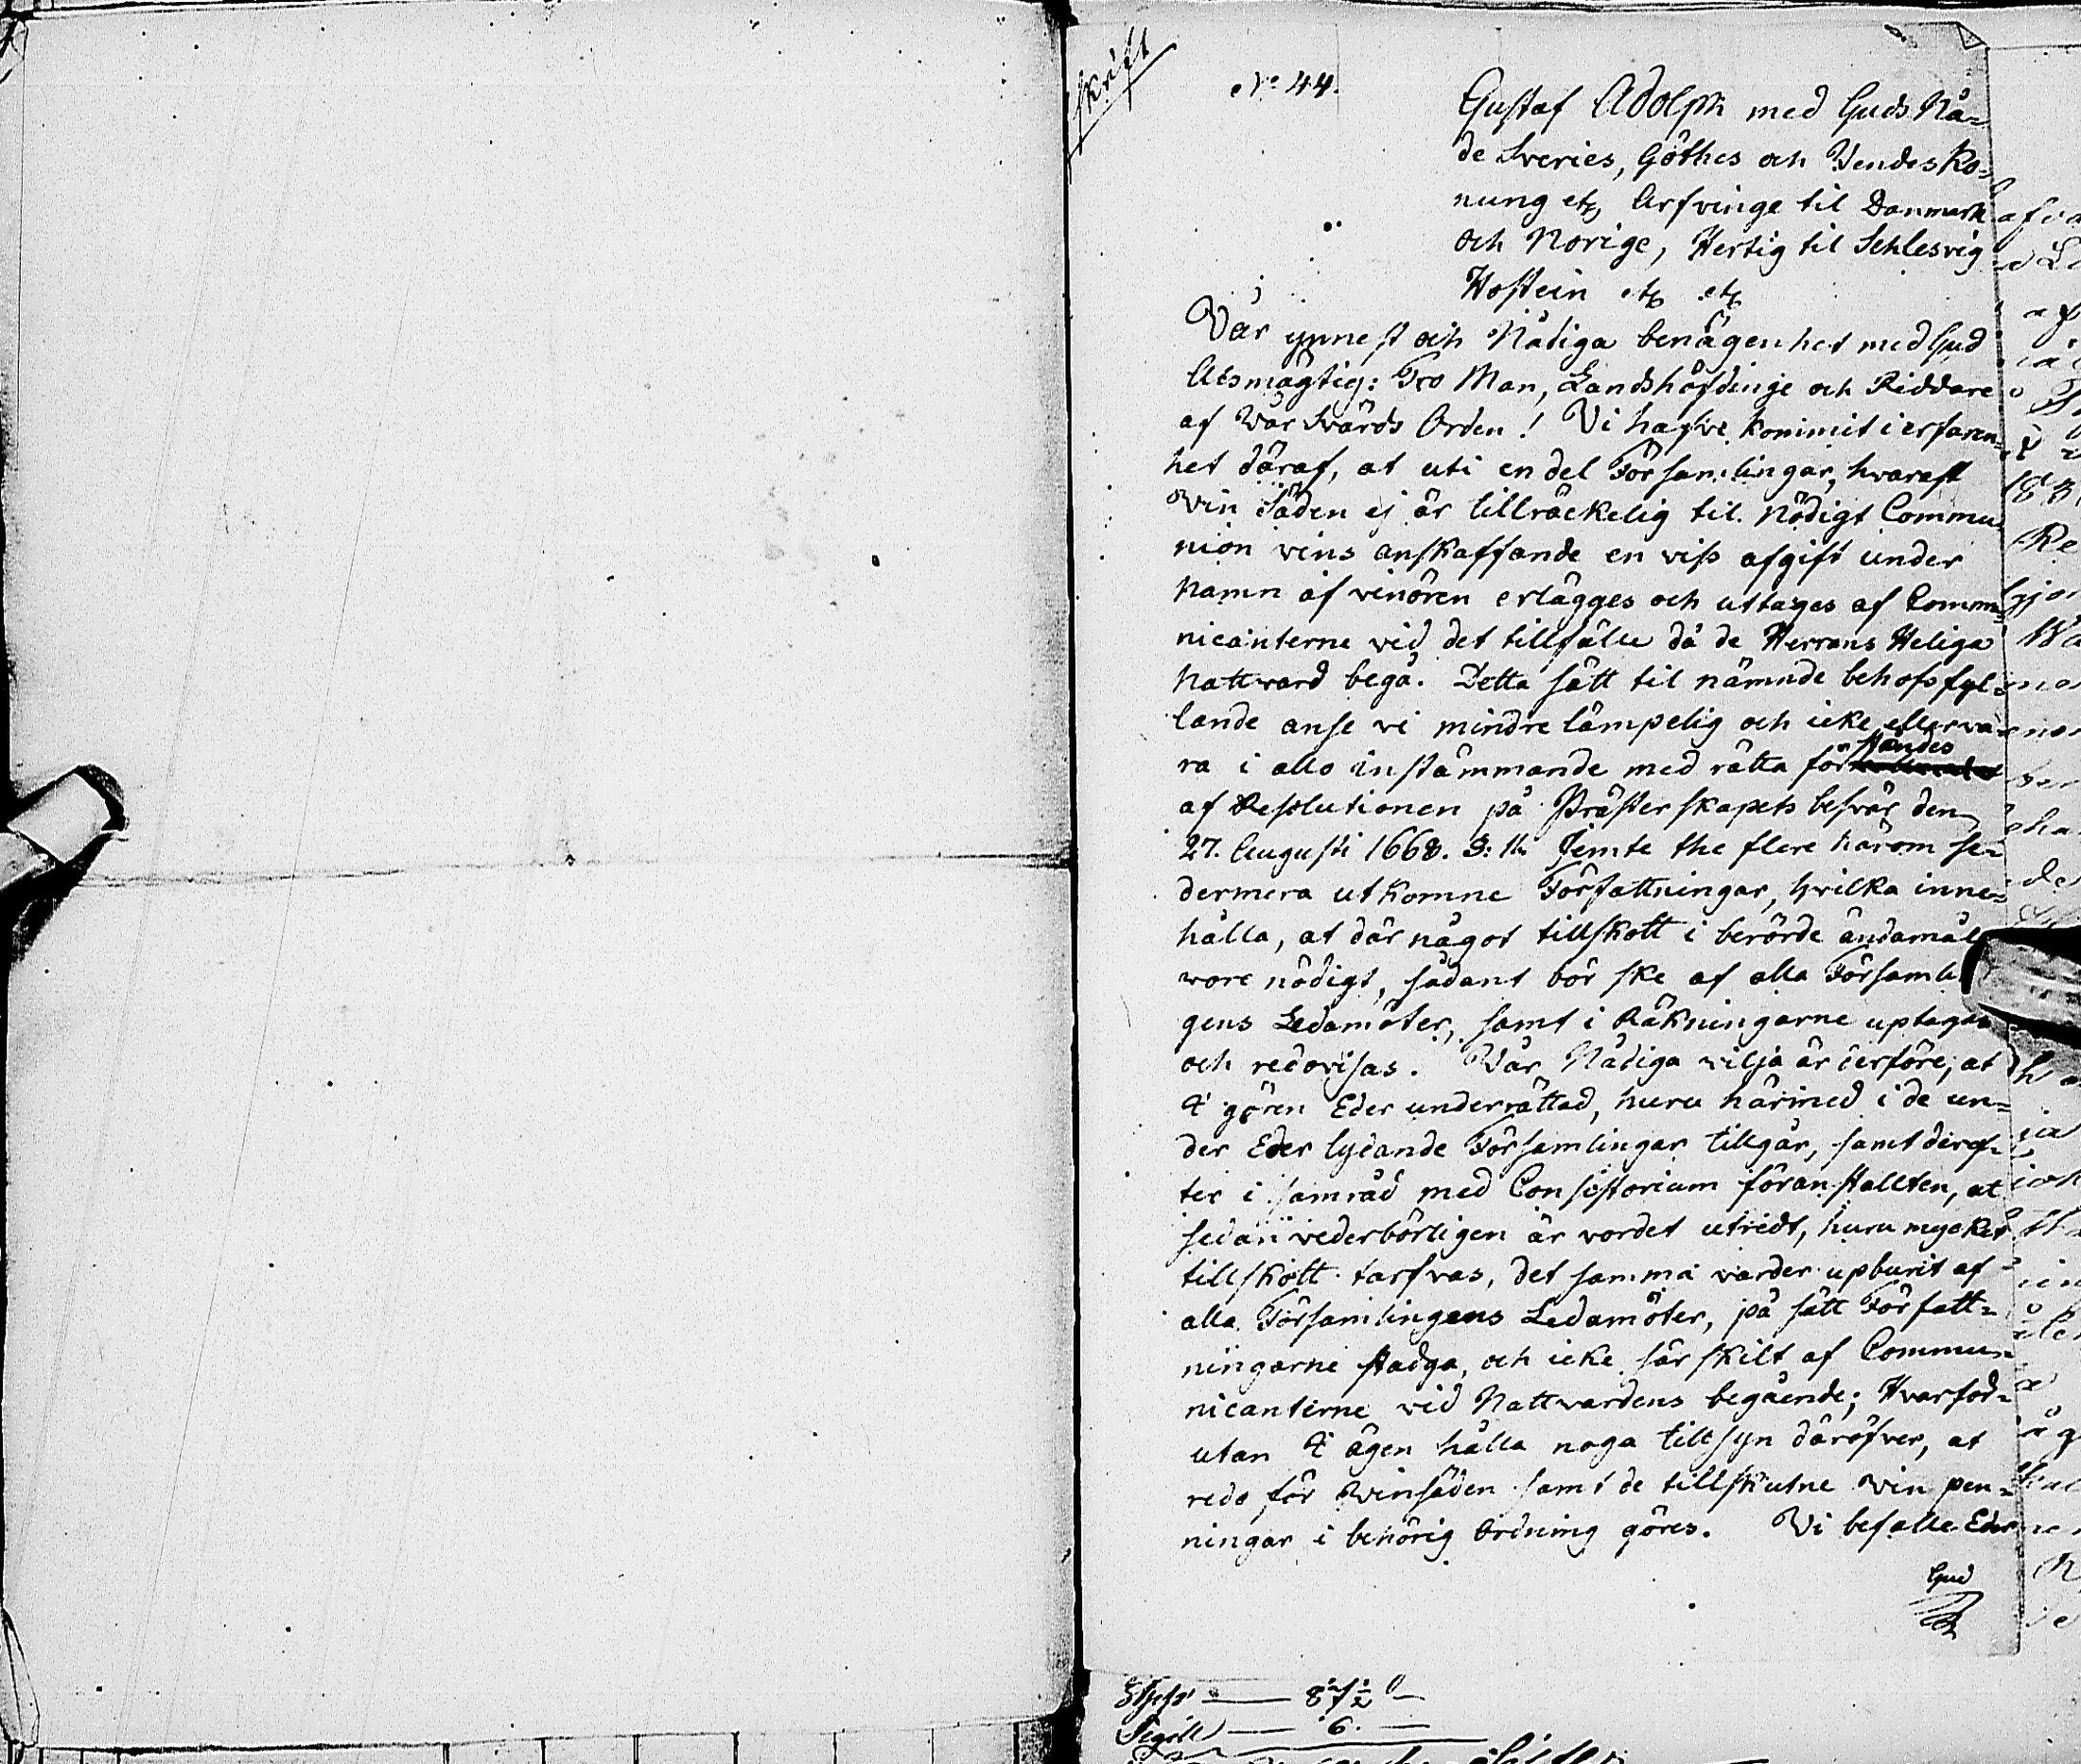 skrift
No. 44.
Gustaf Adolph med Guds Nå-
de Sveries, Göthes och Vendes Ko-
nung etc Arfvinge til Danmark
och Norige, Hertig til Schlesvig
Hostein etc etc
Vår ynnest och Nådiga benägenhet med Gud
Alsmägtig: Tro Man, Landshöfdinge och Riddare
af Wår Svärds Orden! Vi hafve kommit i erfaren-
het däraf, at uti en del Församlingar, hvarest
Vin Säden ej är tillräckelig til nödigt Commu-
nion vins anskaffande en viss afgift under
Namn af vinören erlägges och uttages af Commu-
nicanterne vid det tillfälle då de Herrans Heliga
Nattward begå. Detta sätt til nämnde behofs fyl-
lande anse vi mindre lämpelig och icke eller va-
ra i allo instämmande med rätta förståndes
af Resolutionen på Prästerskapets besvär den
27. Augusti 1668. 3: Jemte the flere härom se-
dermera utkomne Författningar, hvilka inne-
hålla, at där något tillskott i berörde ändamål
wore nödigt, sådant bör ske af alla Församli
gens Ledamöter, samt i Räkningarne uptagas
och redovisas. Wår Nådiga vilja är derföre, at
I gören Eder underrättad, huru härmed i de un-
der Eder lydande Församlingar tillgår, samt deref-
ter i samråd med Consistorium föranstallten, at
sedan vederbörligen är vordet utredt, huru mycket
tillskott tarfvas, det samma varder upburit af
alla Församlingens Ledamöter, på sätt Författ-
ningarne stadga, och icke särskilt af Commu-
nicanterne vid Nattvardens begående; Hvarför-
utan I ägen hålla noga tillsyn däröfver, at
redo för Vinsäden samt de tillskutne vin pen-
ningar i behörig Ordning göres. Vi befalle Eder
Gud
Sigill — 6. —